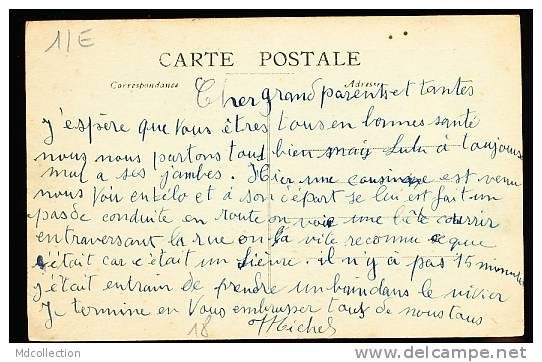 1/E
CARTE POSTALE
Correspondance Adresse
Cher grand parents et tantes
J'espère que vous êtres tous en bonnes santé
nous nous portons tous bien mais Lulu à toujours
mal a ses jambes. Hier une cousine est venu
nous voir en vélo et à son départ je lui est fait un
pas de conduite en route on voit une bête courrir
en traversant la rue on la vite reconnu ce que
s'était car c'était un lièvre. il n'y à pas 15 minutes
j'était entrain de prendre un bain dans le vivier
Je termine en vous embrasser tous de nous tous
18 Michel
Mdcollection
France
delcampe.net